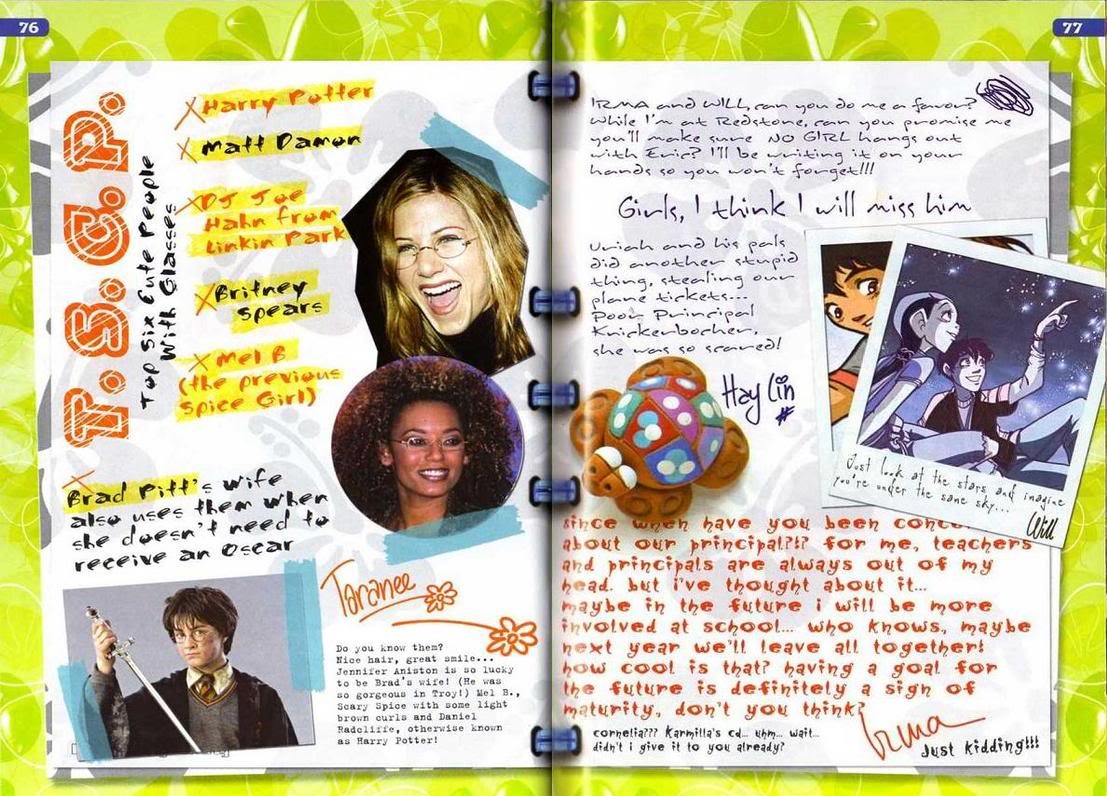 76
T.S.C.P.
Top Six Cute People
With Glasses
X Harry Potter
X Matt Damon
X DJ Joe
Hahn from
Linkin Park
X Britney
Spears
X Mel B
(the previous
Spice Girl)
X
Brad Pitt's wife
also uses them when
she doesn't need to
receive an Oscar
Taranee
Do you know them?
Nice hair, great smile...
Jennifer Aniston is so lucky
to be Brad's wife! (He was
so gorgeous in Troy!) Mel B.,
Scary Spice with some light
brown curls and Daniel
Radcliffe, otherwise known
as Harry Potter!
77
IRMA and WILL, can you do me a favor?
While I'm at Redstone, can you promise me
you'll make sure NO GIRL hangs out
with Eric? I'll be writing it on your
hands so you won't forget!!!
Girls, I think I will miss him
Uriah and his pals
did another stupid
thing, stealing our
plane tickets...
Poor Principal
Knickerbocher,
she was so scared!
Hay Lin
Just look at the stars and imagine
you're under the same sky...
Will
since when have you been conce
about our principal?!? for me, teachers
and principals are always out of my
head. but i've thought about it...
maybe in the future i will be more
involved at school... who knows, maybe
next year we'll leave all together!
how cool is that? having a goal for
the future is definitely a sign of
maturity, don't you think?
Irma
cornelia??? Karmilla's cd... uhm... wait...
didn't i give it to you already?
Just kidding!!!